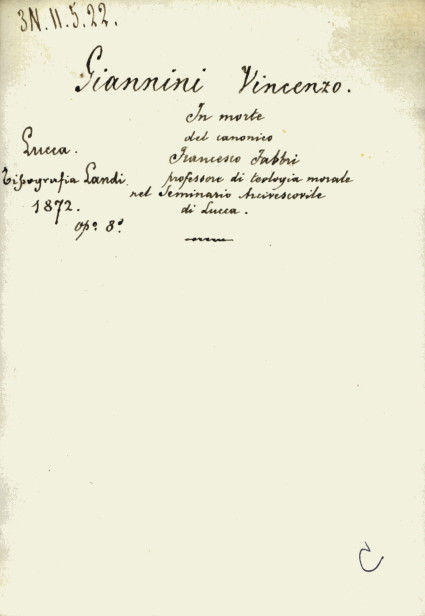 3N.II.5.22.
Giannini Vincenzo.
In morte
del canonico
Francesco Fabbri
professore di teologia morale
nel Seminario Arcivescovile
di Lucca.
Lucca.
Tipografia Landi
1872.
op.º 8.º
C